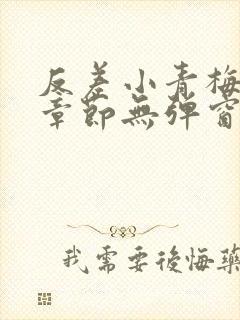 反差小青梅
章節無彈窗
我需要後悔藥